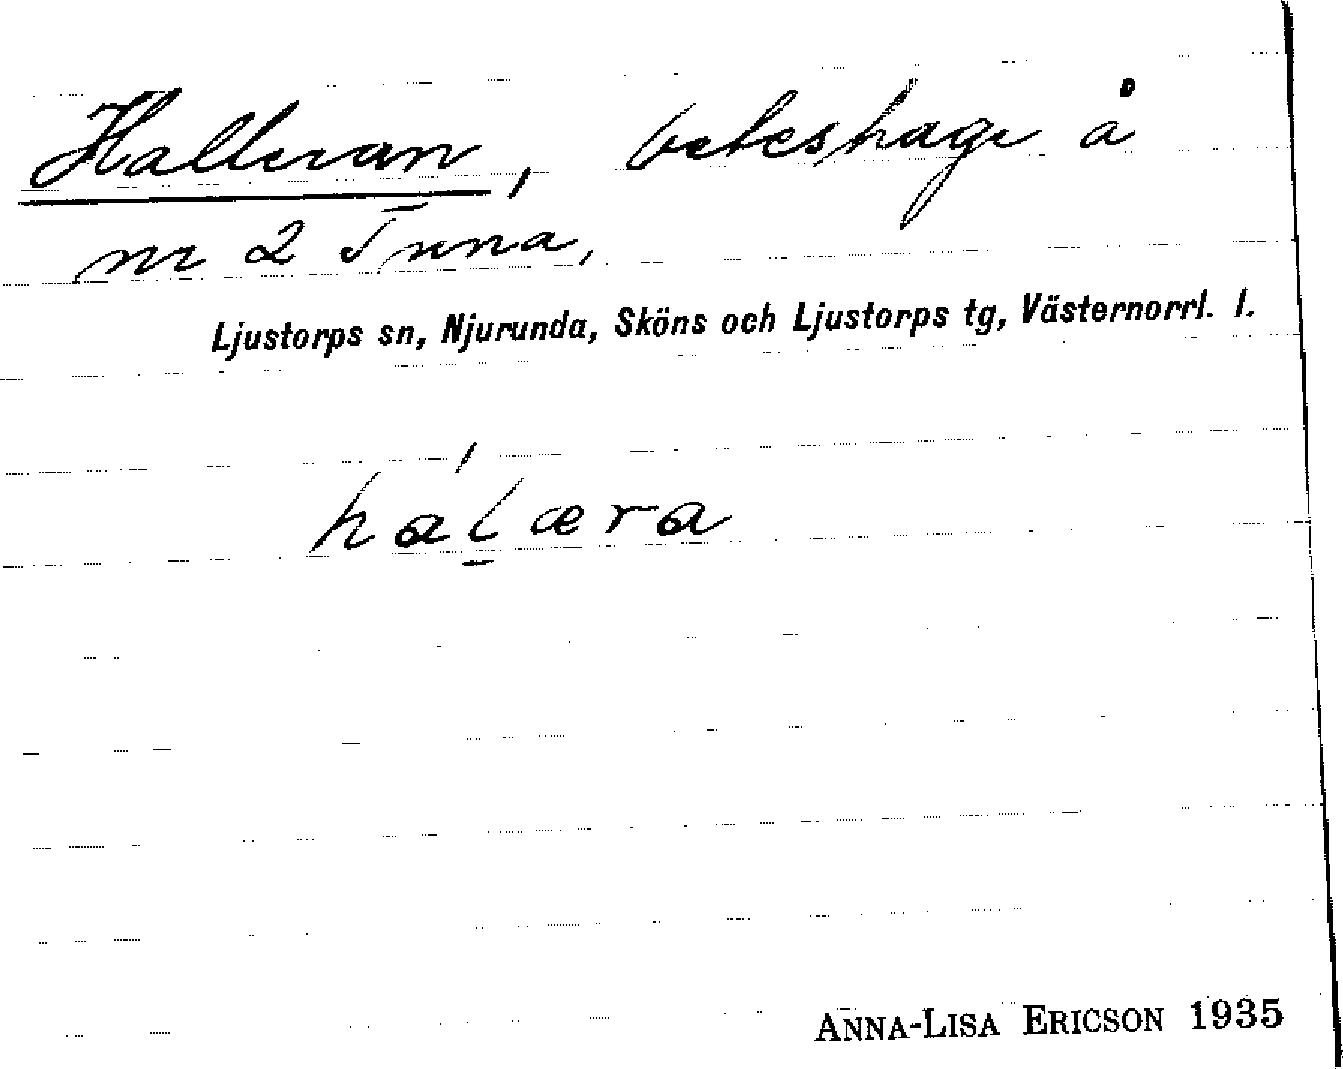 Halleran, beteshage å
nr 2 Tunna,
Ljustorps sn, Njurunda, Sköns och Ljustorps tg, Västernorrl. l.
ha̍l̠æra
ANNA-LISA ERICSON 1935